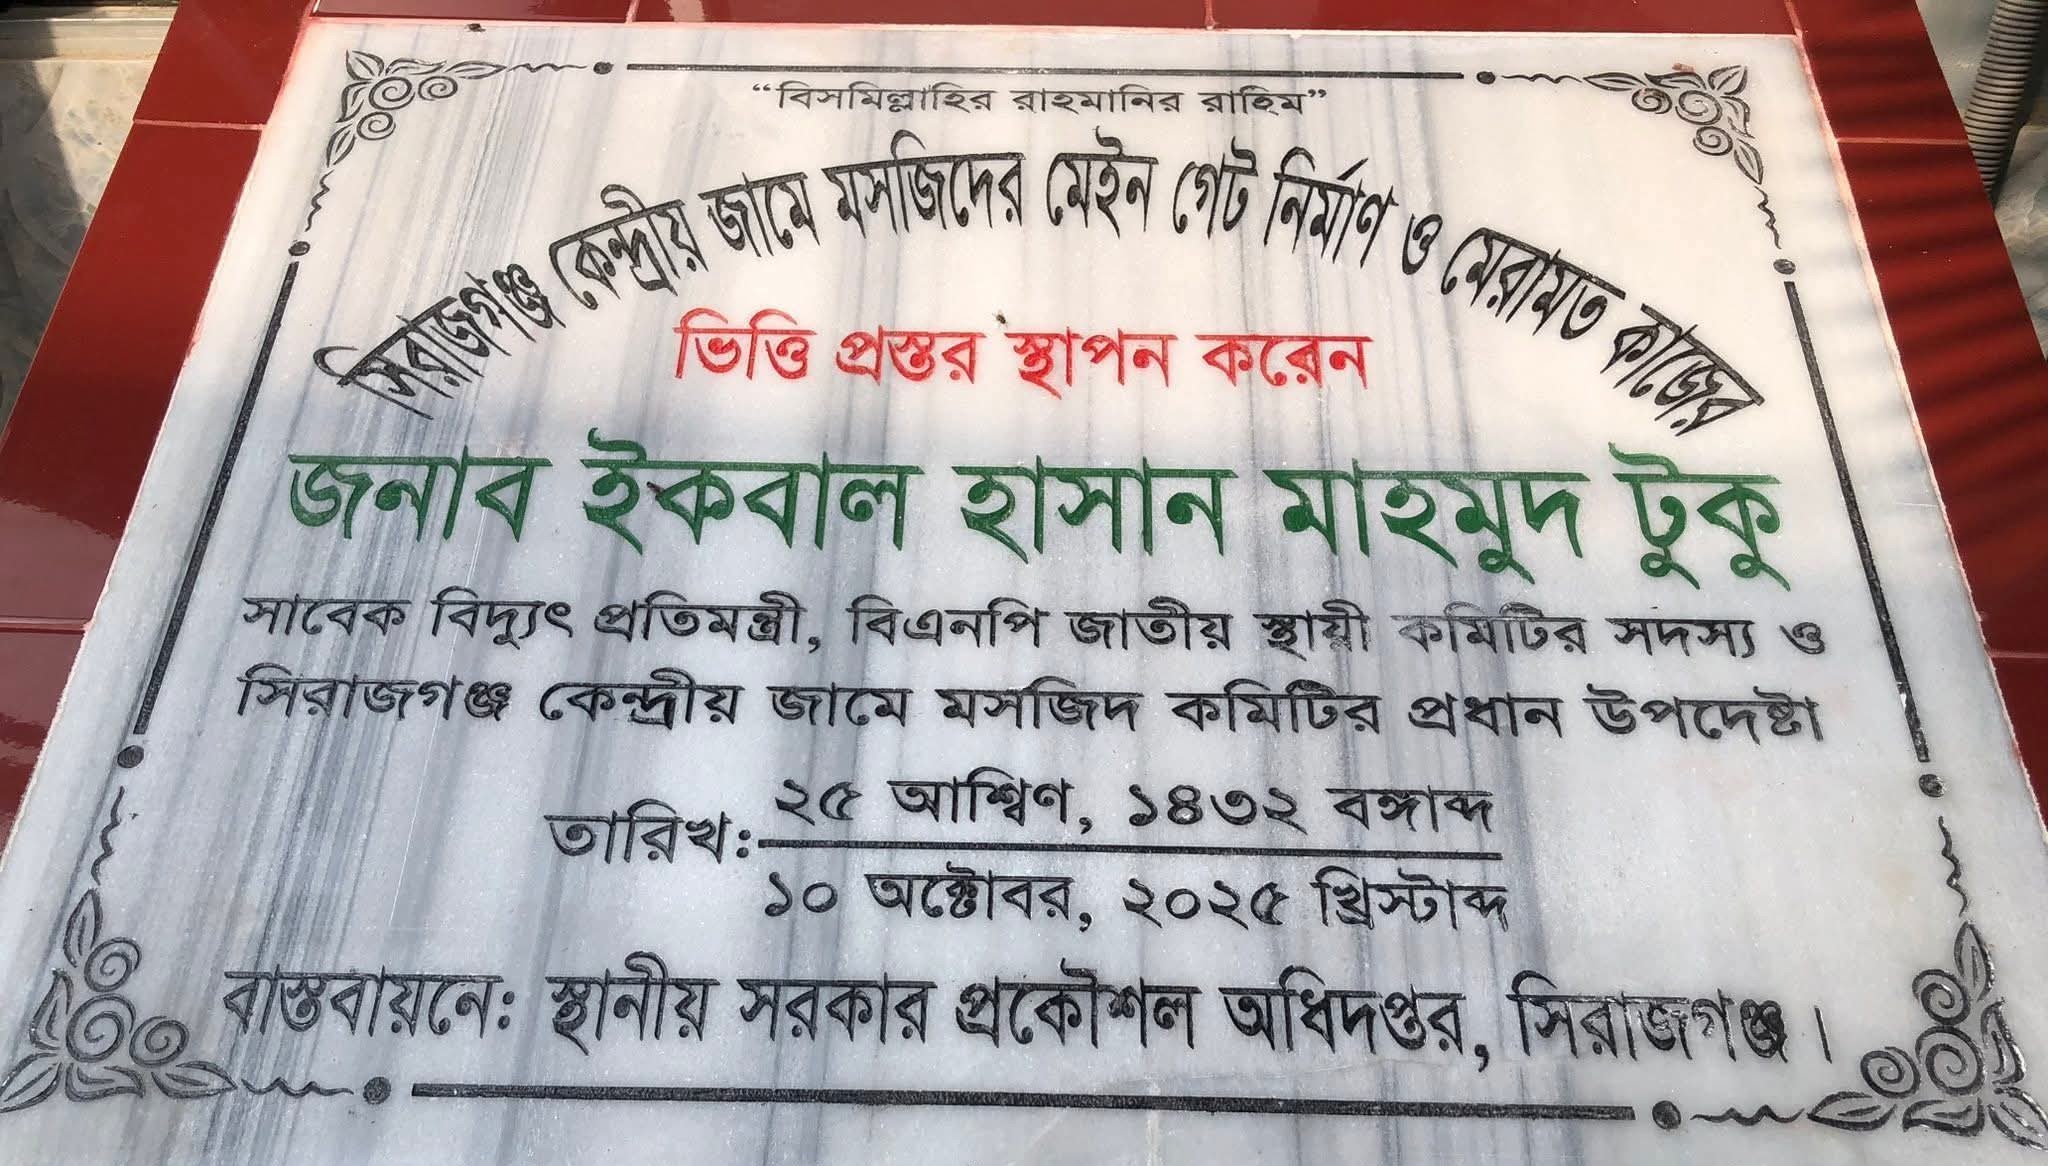 “বিসমিল্লাহির রাহমানির রাহিম”
সিরাজগঞ্জ কেন্দ্রীয় জামে মসজিদের মেইন গেট নির্মাণ ও মেরামত কাজের
ভিত্তি প্রস্তর স্থাপন করেন
জনাব ইকবাল হাসান মাহমুদ টুকু
সাবেক বিদ্যুৎ প্রতিমন্ত্রী, বিএনপি জাতীয় স্থায়ী কমিটির সদস্য ও
সিরাজগঞ্জ কেন্দ্রীয় জামে মসজিদ কমিটির প্রধান উপদেষ্টা
তারিখ: ২৫ আশ্বিণ, ১৪৩২ বঙ্গাব্দ
১০ অক্টোবর, ২০২৫ খ্রিস্টাব্দ
বাস্তবায়নে: স্থানীয় সরকার প্রকৌশল অধিদপ্তর, সিরাজগঞ্জ।